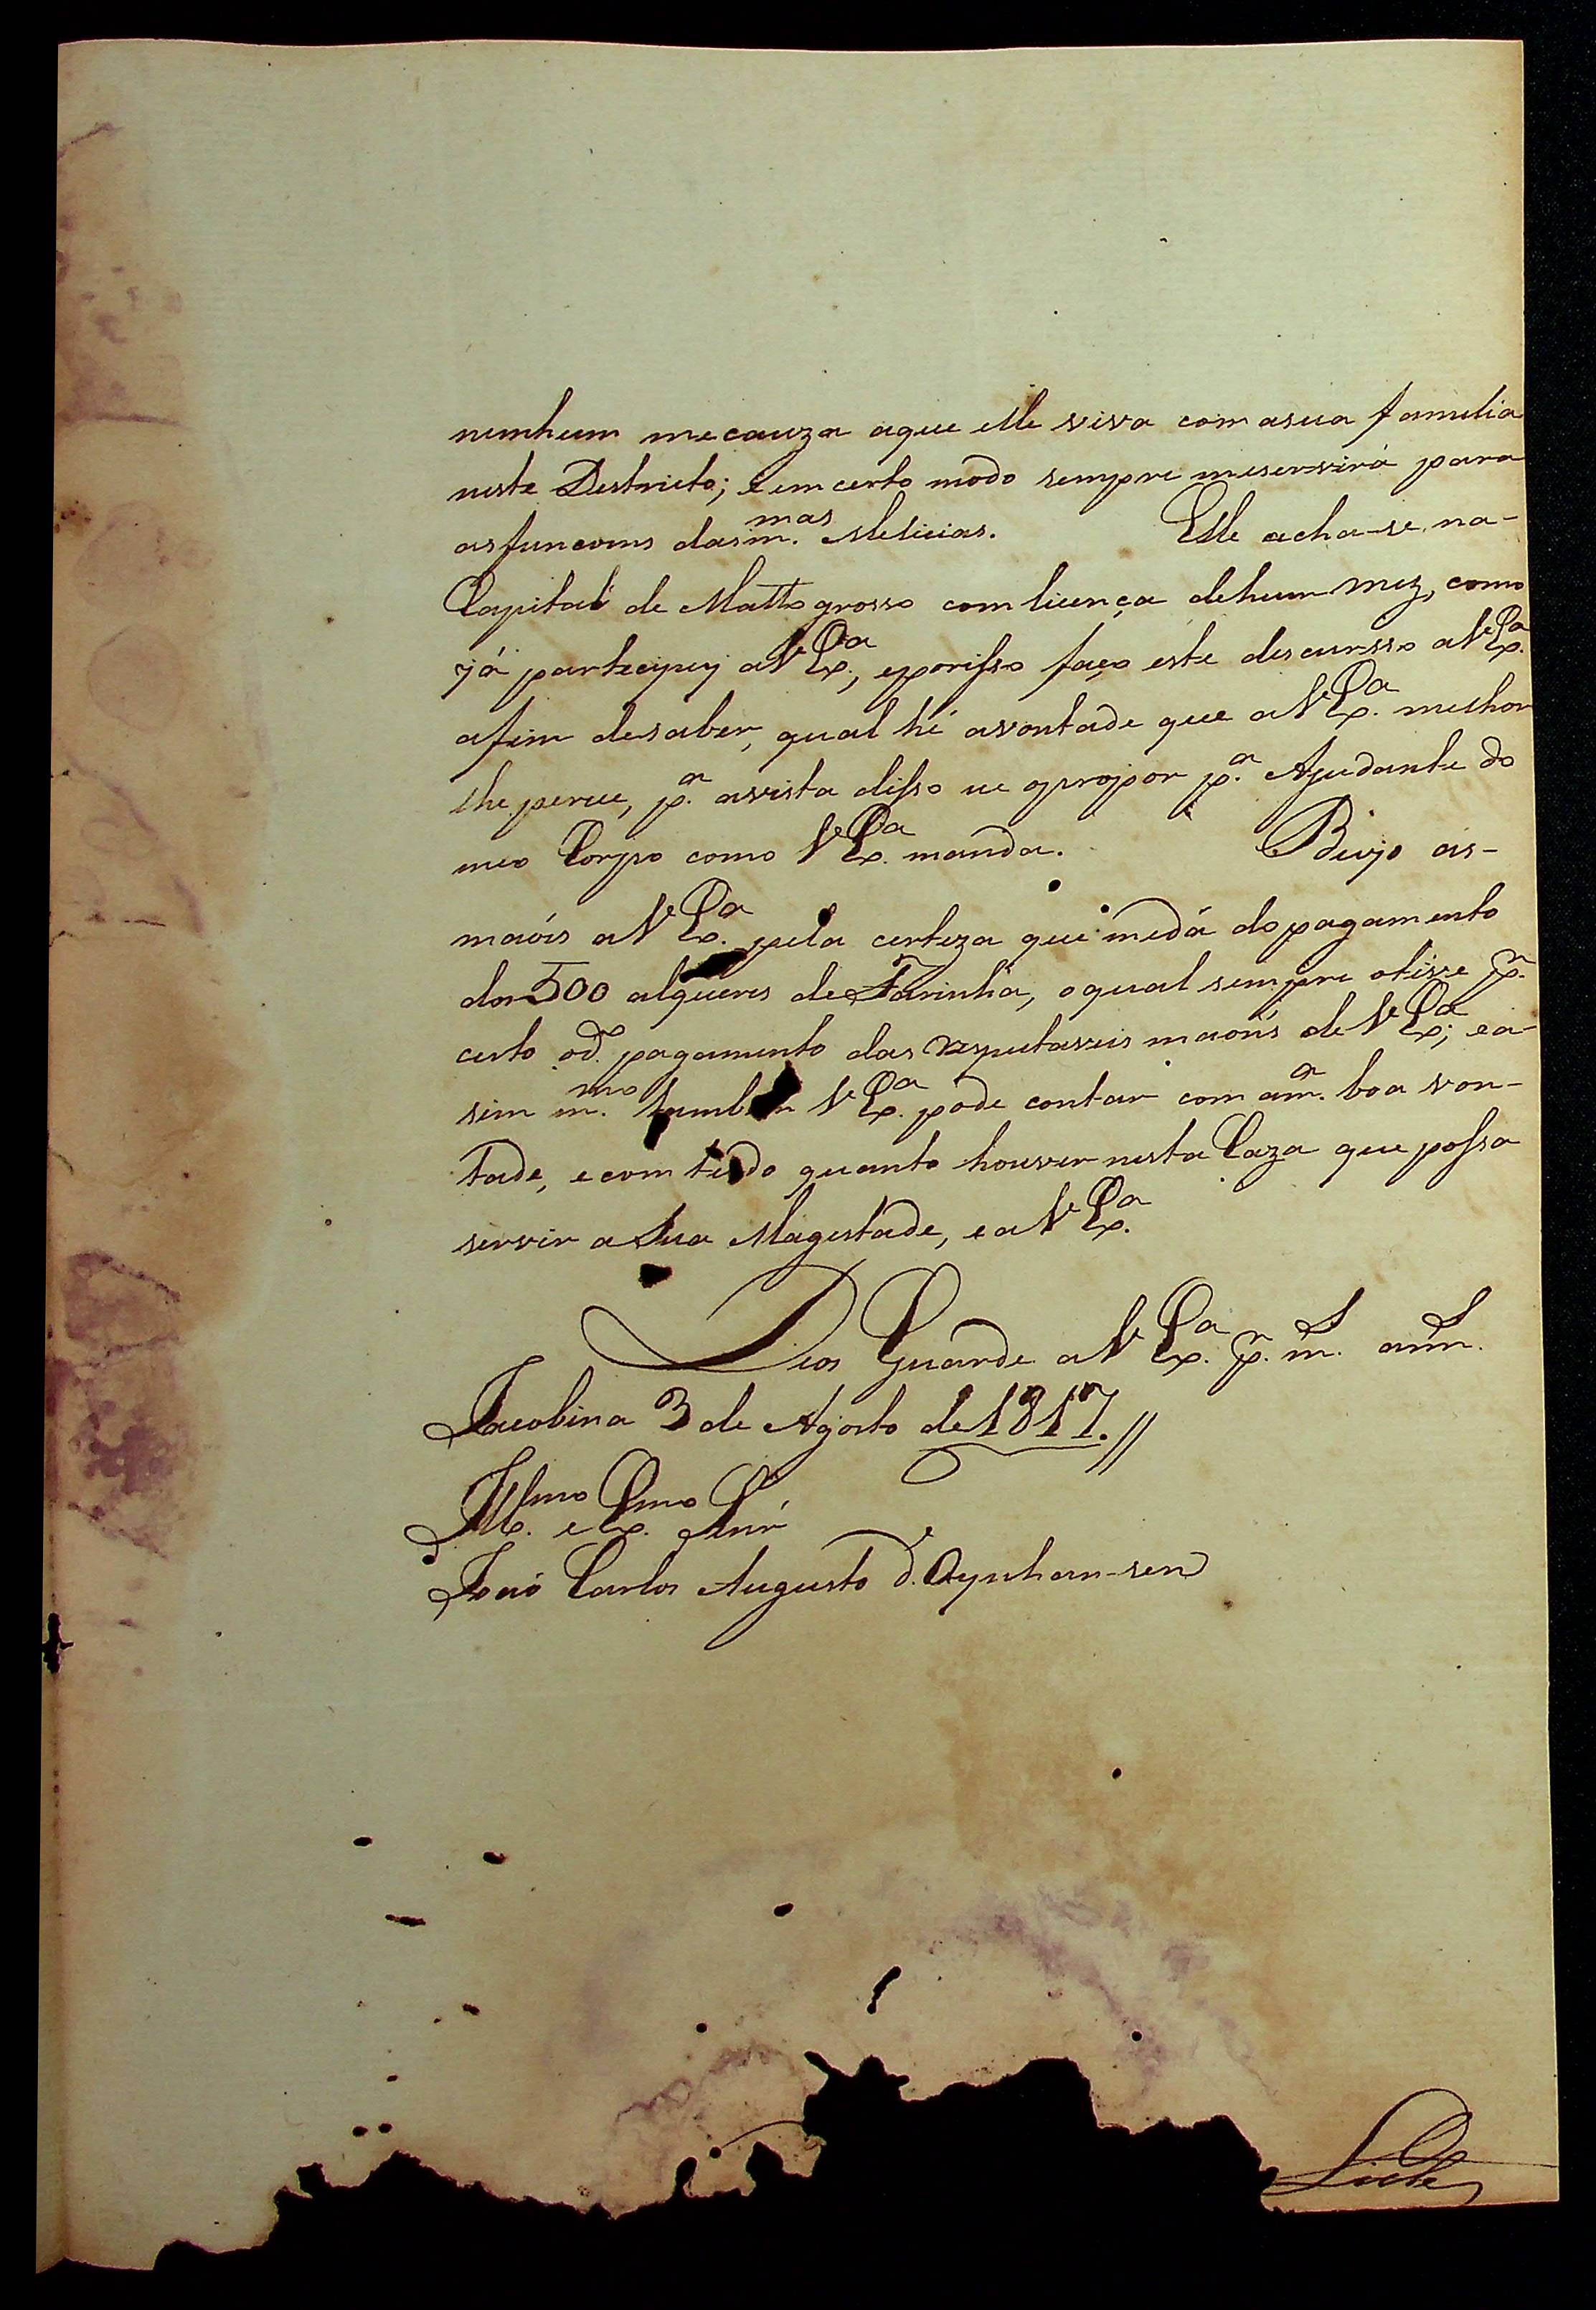 nenhum mecauza aque elle viva com asua familia
neste Destricto; é em certo modo sempre meservirá para
asfuncoins das m.mas Melicias. Elle acha-se na-
Capital de Mattogrosso com licença dehum mez, como
já partecipej a V Ex.ª, eporisso faço este descursso a V Ex.ª
afim desaber, qual hé avontade que a V Ex.ª melhor
lhe perece, p.ª avista disso eu opropor p.ª Ajudante do
meo Corpo como V Ex.ª manda. Beijo as-
maóis a V Ex.ª pela certeza que medá dopagamento
dos 500 alqueres de Farinha, oqual sempre otive p.r
certo od. pagamento das respetaveis maoñs de V Ex.ª; ea-
sim m.mo tambem V Ex.ª pode contar com am.ª boa von-
tade, ecom tudo quanto houver nesta Caza que possa
servir a Sua Magestade, e a V Ex.ª
Deos Guarde a V Ex.ª p.r m.s ann.s
Jacobina 3 de Agosto de 1817.//
Ill.mo e Ex.mo Snŕ
João Carlos Augusto d'Oeynhau-sen
Leite